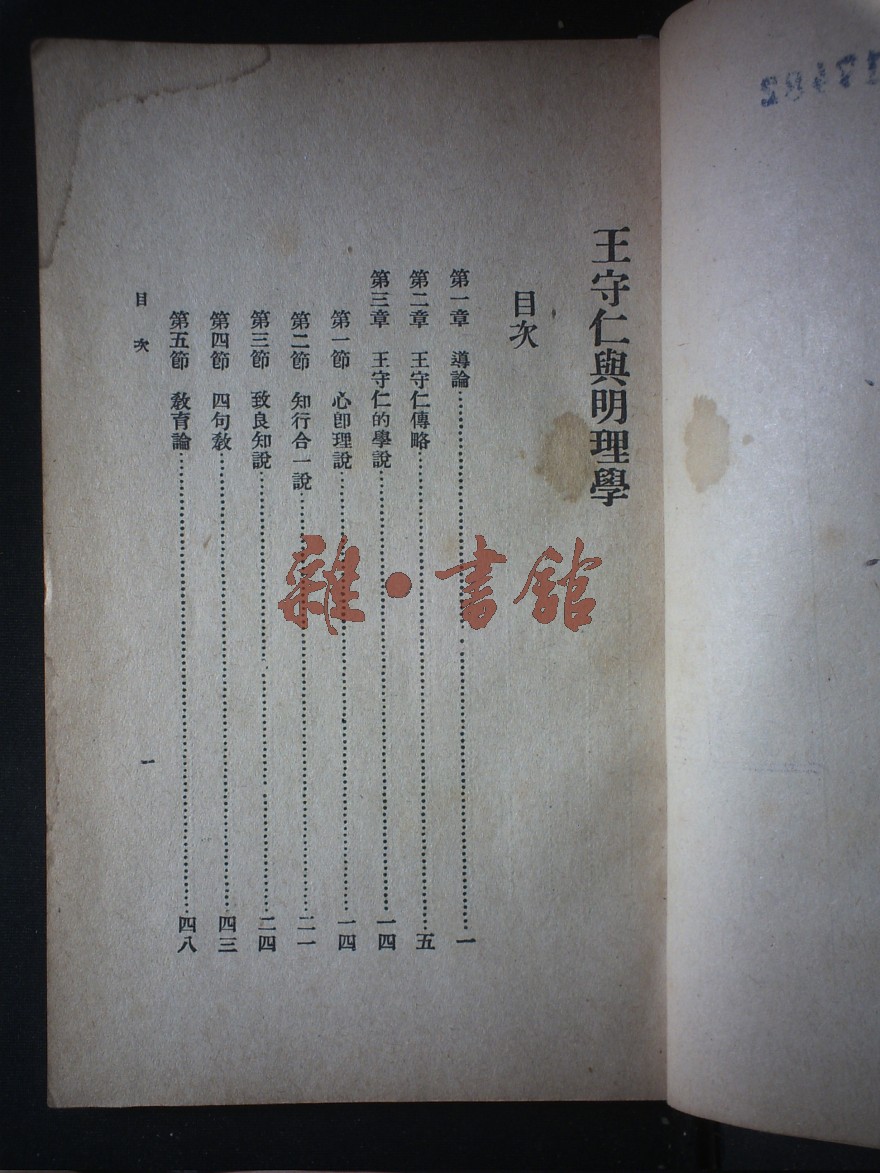 王守仁與明理學
目次
第一章 導論…………一
第二章 王守仁傳略…………五
第三章 王守仁的學說…………一四
第一節 心卽理說…………一四
第二節 知行合一說…………二一
第三節 致良知說…………二四
第四節 四句敎…………四三
第五節 敎育論…………四八
目次
一
雜·書館